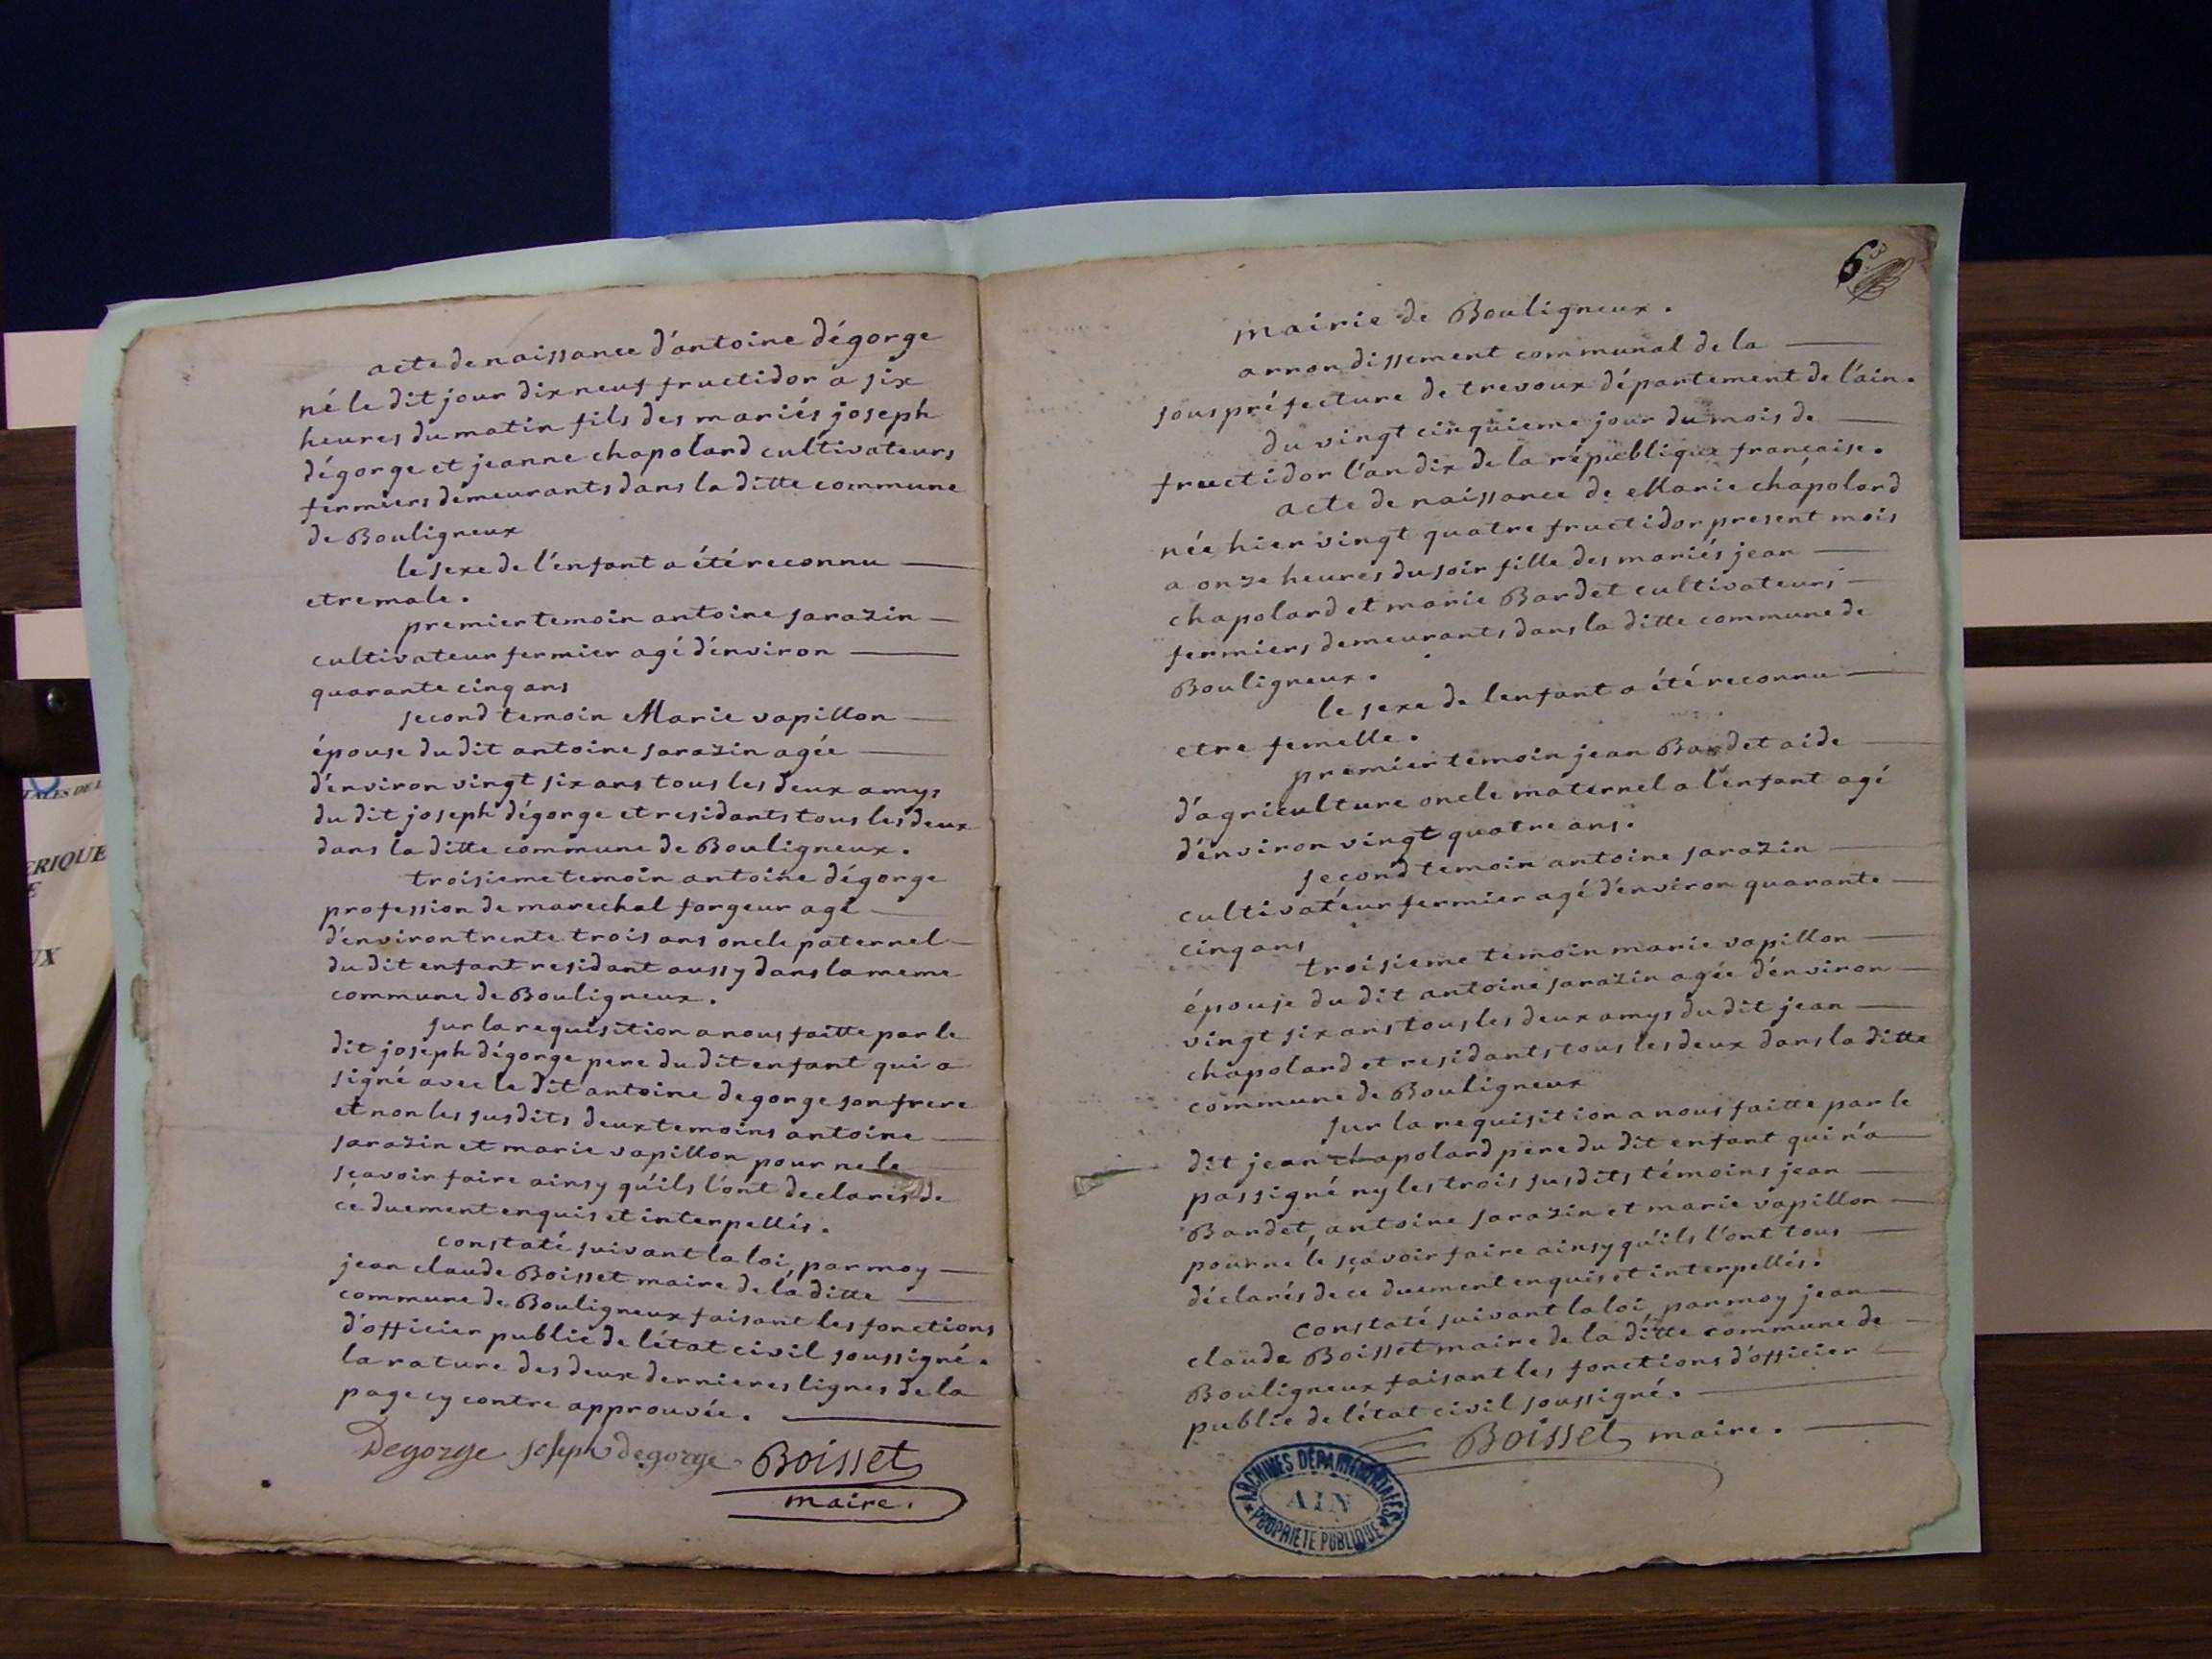 acte de naissance d'antoine dégorge
né le dit jour dix neuf fructidor a six
heures du matin fils des mariés joseph
dégorge et jeanne chapolard cultivateurs
fermiers demeurants dans la ditte commune
de Bouligneux
le sexe de l'enfant a été reconnu
etre male.
premier temoin antoine sarazin
cultivateur fermier agé d'environ
quarante cinq ans
second temoin Marie vapillon
épouse du dit antoine sarazin agée
d'environ vingt six ans tous les deux amys
du dit joseph dégorge et residants tous les deux
dans la ditte commune de Bouligneux.
troisieme temoin antoine dégorge
profession de marechal forgeur agé
d'environ trente trois ans oncle paternel
du dit enfant residant aussy dans la meme
commune de Bouligneux.
sur la requisition a nous faitte par le
dit joseph dégorge pere du dit enfant qui a
signé avec le dit antoine degorge son frere
et non les susdits deux temoins antoine
sarazin et marie vapillon pour ne le
sçavoir faire ainsy qu'ils l'ont declarés de
ce duement enquis et interpellés.
constaté suivant la loi, par moy
jean claude Boisset maire de la ditte
commune de Bouligneux faisant les fonctions
d'officier public de l'état civil soussigné.
la rature des deux dernieres lignes de la
page cy contre approuvée.
Degorge joseph degorge Boisset
maire.
6
mairie de Bouligneux.
arrondissement communal de la
sous préfecture de trevoux département de l'ain.
du vingt cinquieme jour du mois de
fructidor l'an dix de la république française.
acte de naissance de Marie chapolard
née hier vingt quatre fructidor present mois
a onze heures du soir fille des mariés jean
chapolard et marie Bardet cultivateurs
fermiers demeurants dans la ditte commune de
Bouligneux.
le sexe de l'enfant a été reconnu
etre femelle.
premier temoin jean Bardet aide
d'agriculture oncle maternel a l'enfant agé
d'environ vingt quatre ans.
second temoin antoine sarazin
cultivateur fermier agé d'environ quarante
cinq ans
troisieme temoin marie vapillon
épouse du dit antoine sarazin agée d'environ
vingt six ans tous les deux amys du dit jean
chapolard et residants tous les deux dans la ditte
commune de Bouligneux
sur la requisition a nous faitte par le
dit jean chapolard pere du dit enfant qui n'a
pas signé ny les trois susdits témoins jean
Bardet, antoine sarazin et marie vapillon
pour ne le sçavoir faire ainsy qu'ils l'ont tous
déclarés de ce duement enquis et interpellés.
Constaté suivant la loi, par moy jean
claude Boisset maire de la ditte commune de
Bouligneux faisant les fonctions d'officier
public de l'état civil soussigné.
Boisset maire.
ARCHIVES DÉPARTEMENTALES
AIN
PROPRIÉTÉ PUBLIQUE